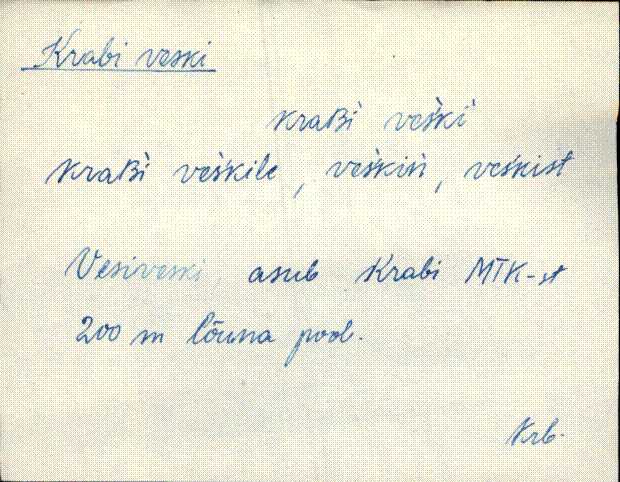 Krabi veski
kraʙ̀i ves̀ḱi
kraʙ̀i ves̀ḱile, ves̀ḱin, ves̀ḱist
Vesiveski asub Krabi MTK-st
200 m lõuna pool.
Krb.